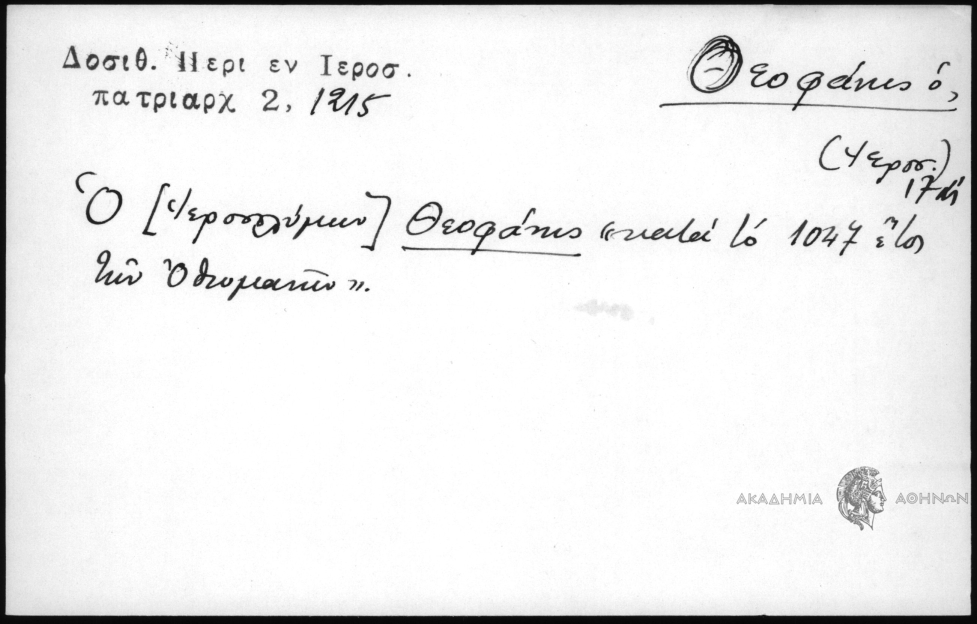 Δοσιθ. Περι εν Ιεροσ.
πατριαρχ 2, 1215
Θεοφάνης ὁ,
(Ἱεροσ.)
17
Ὁ [Ἱεροσολύμων] Θεοφάνης «κατά τό 1047 ἔτος
τῶν Ὀθωμανῶν».
ΑΚΑΔΗΜΙΑ ΑΘΗΝΩΝ